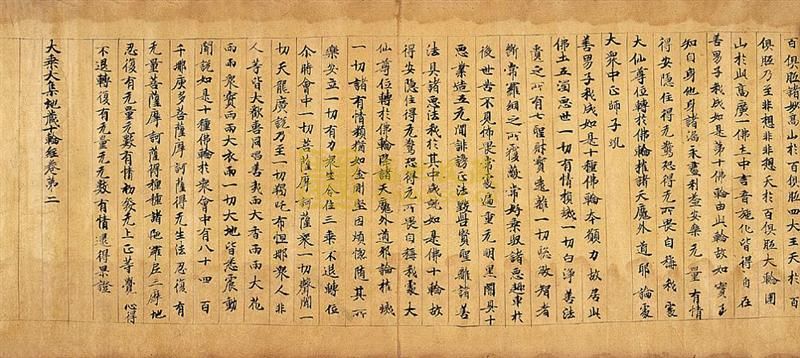 百俱胝諸妙高山於百俱胝四大王天於百
俱胝乃至非想非非想天於百俱胝大輪圍
山於此高廣一佛土中言音施化皆得自在
善男子我成如是第十佛輪由此輪故如實了
知自身他身諸漏永盡利益安樂无量有情
得安隱住得无驚恐得无所畏自稱我處
大仙尊位轉於佛輪摧諸天魔外道邪論處
大衆中正師子吼
善男子我成如是十種佛輪本願力故居此
佛土五濁惡世一切有情損減一切白淨善法
匱乏所有七聖財寶遠離一切聰敏智者
斷常羅網之所覆蔽常好乘馭諸惡趣車於
後世苦不見怖畏常處遍重无明黑闇具十
惡業造五无間誹謗正法毀呰賢聖離諸善
法具諸惡法我於其中成就如是佛十輪故
得安隱住得无驚恐得无所畏自稱我處大
仙尊位轉於佛輪降諸天魔外道邪論摧滅
一切諸有情類猶如金剛堅固煩惱隨其所
樂安立一切有力衆生令住三乘不退轉位
尒時會中一切菩薩摩訶薩衆一切聲聞一
切天龍廣說乃至一切羯吒布怛那衆人非
人等皆大歡喜同唱善哉雨大香雨雨大花
雨雨衆寶雨雨大衣雨一切大地皆悉震動
聞說如是十種佛輪於衆會中有八十四百
千那庾多菩薩摩訶薩得无生法忍復有
无量菩薩摩訶薩得種種諸陁羅尼三摩地
忍復有无量无數有情初發无上正等覺心得
不退轉復有无量无數有情逮得果證
大乘大集地藏十輪經卷第二